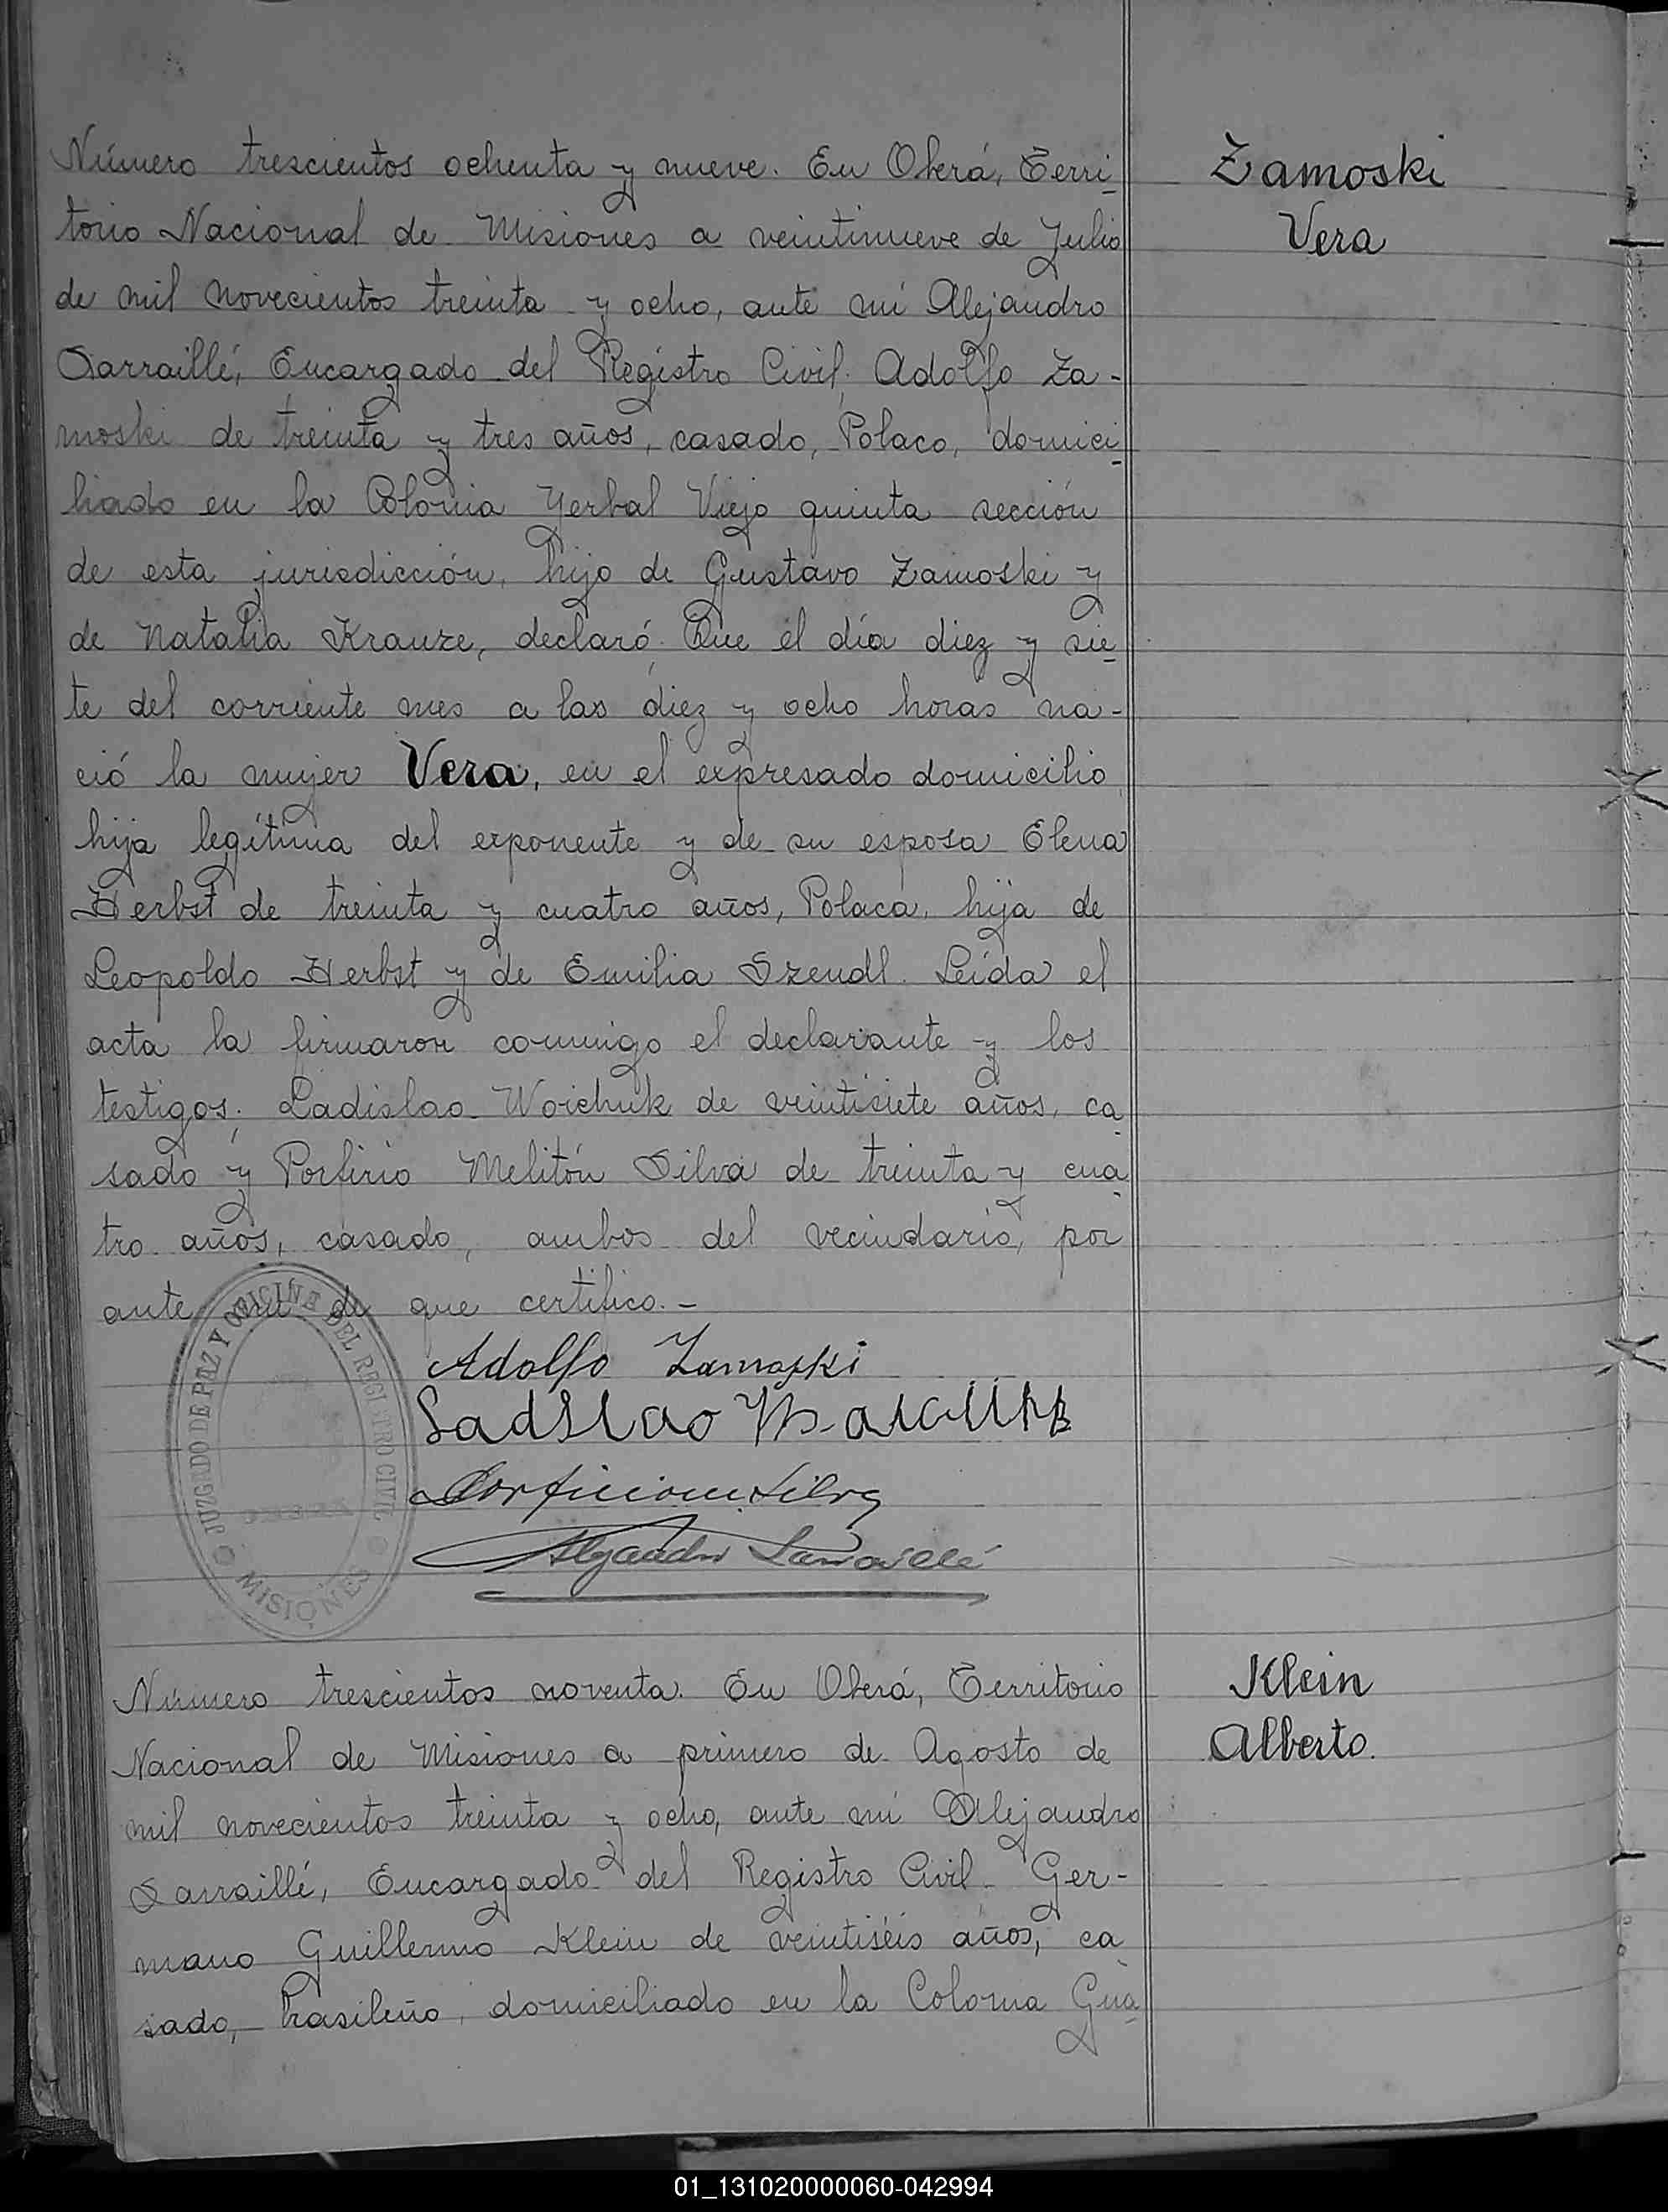 Número trescientos ochenta y nueve. En Oberá, Terri-
torio Nacional de Misiones a veintinueve de Julio
de mil novecientos treinta y ocho, ante mí Alejandro
Sarraillé, Encargado del Registro Civil; Adolfo Za-
moski de treinta y tres años, casado, Polaco, domici-
liado en la Colonia Yerbal Viejo quinta sección
de esta jurisdicción, hijo de Gustavo Zamoski y
de Natalia Krauze, declaró: Que el día diez y sie-
te del corriente mes a las diez y ocho horas na-
ció la mujer Vera, en el expresado domicilio,
hija legítima del exponente y de su esposa Elena
Herbst de treinta y cuatro años, Polaca, hija de
Leopoldo Herbst y de Emilia Szendl. Leída el
acta la firmaron conmigo el declarante y los
testigos; Ladislao Woichuk de veintisiete años, ca-
sado y Porfirio Melitón Silva de treinta y cua-
tro años, casado, ambos del vecindario, por
ante mí de que certifico.-
JUZGADO DE PAZ Y OFICINA DEL REGISTRO CIVIL
MISIONES
Adolfo Zamoski
Ladslao
Porfirio M. Silva
Alejandro Sarraillé
Número trescientos noventa. En Oberá, Territorio
Nacional de Misiones a primero de Agosto de
mil novecientos treinta y ocho, ante mí Alejandro
Sarraillé, Encargado del Registro Civil. Ger-
mano Guillermo Klein de veintiséis años, ca-
sado, brasileño, domiciliado en la Colonia Gua-
Zamoski
Vera
Klein
Alberto.
01_131020000060-042994